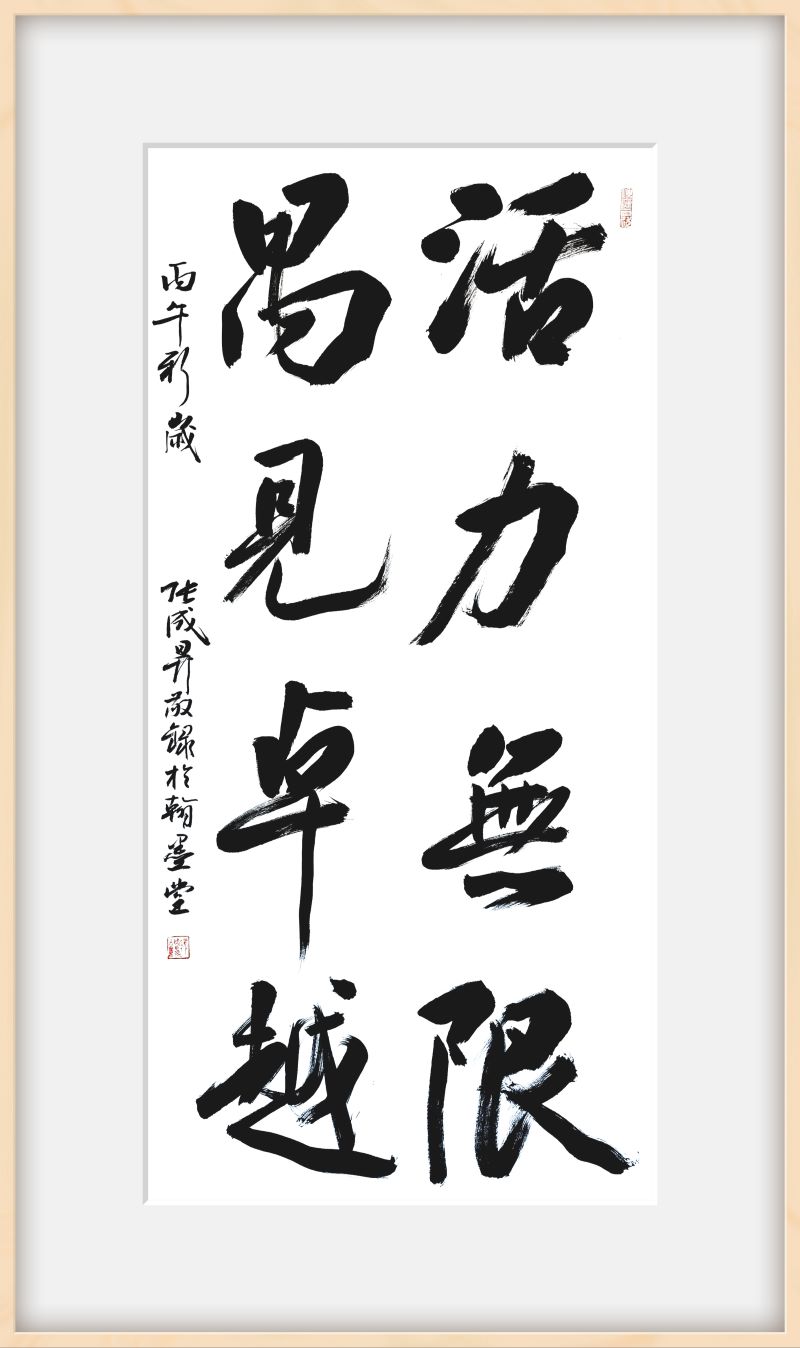 活力無限
禺見卓越
丙午新歲 張成昇敬錄於翰墨堂